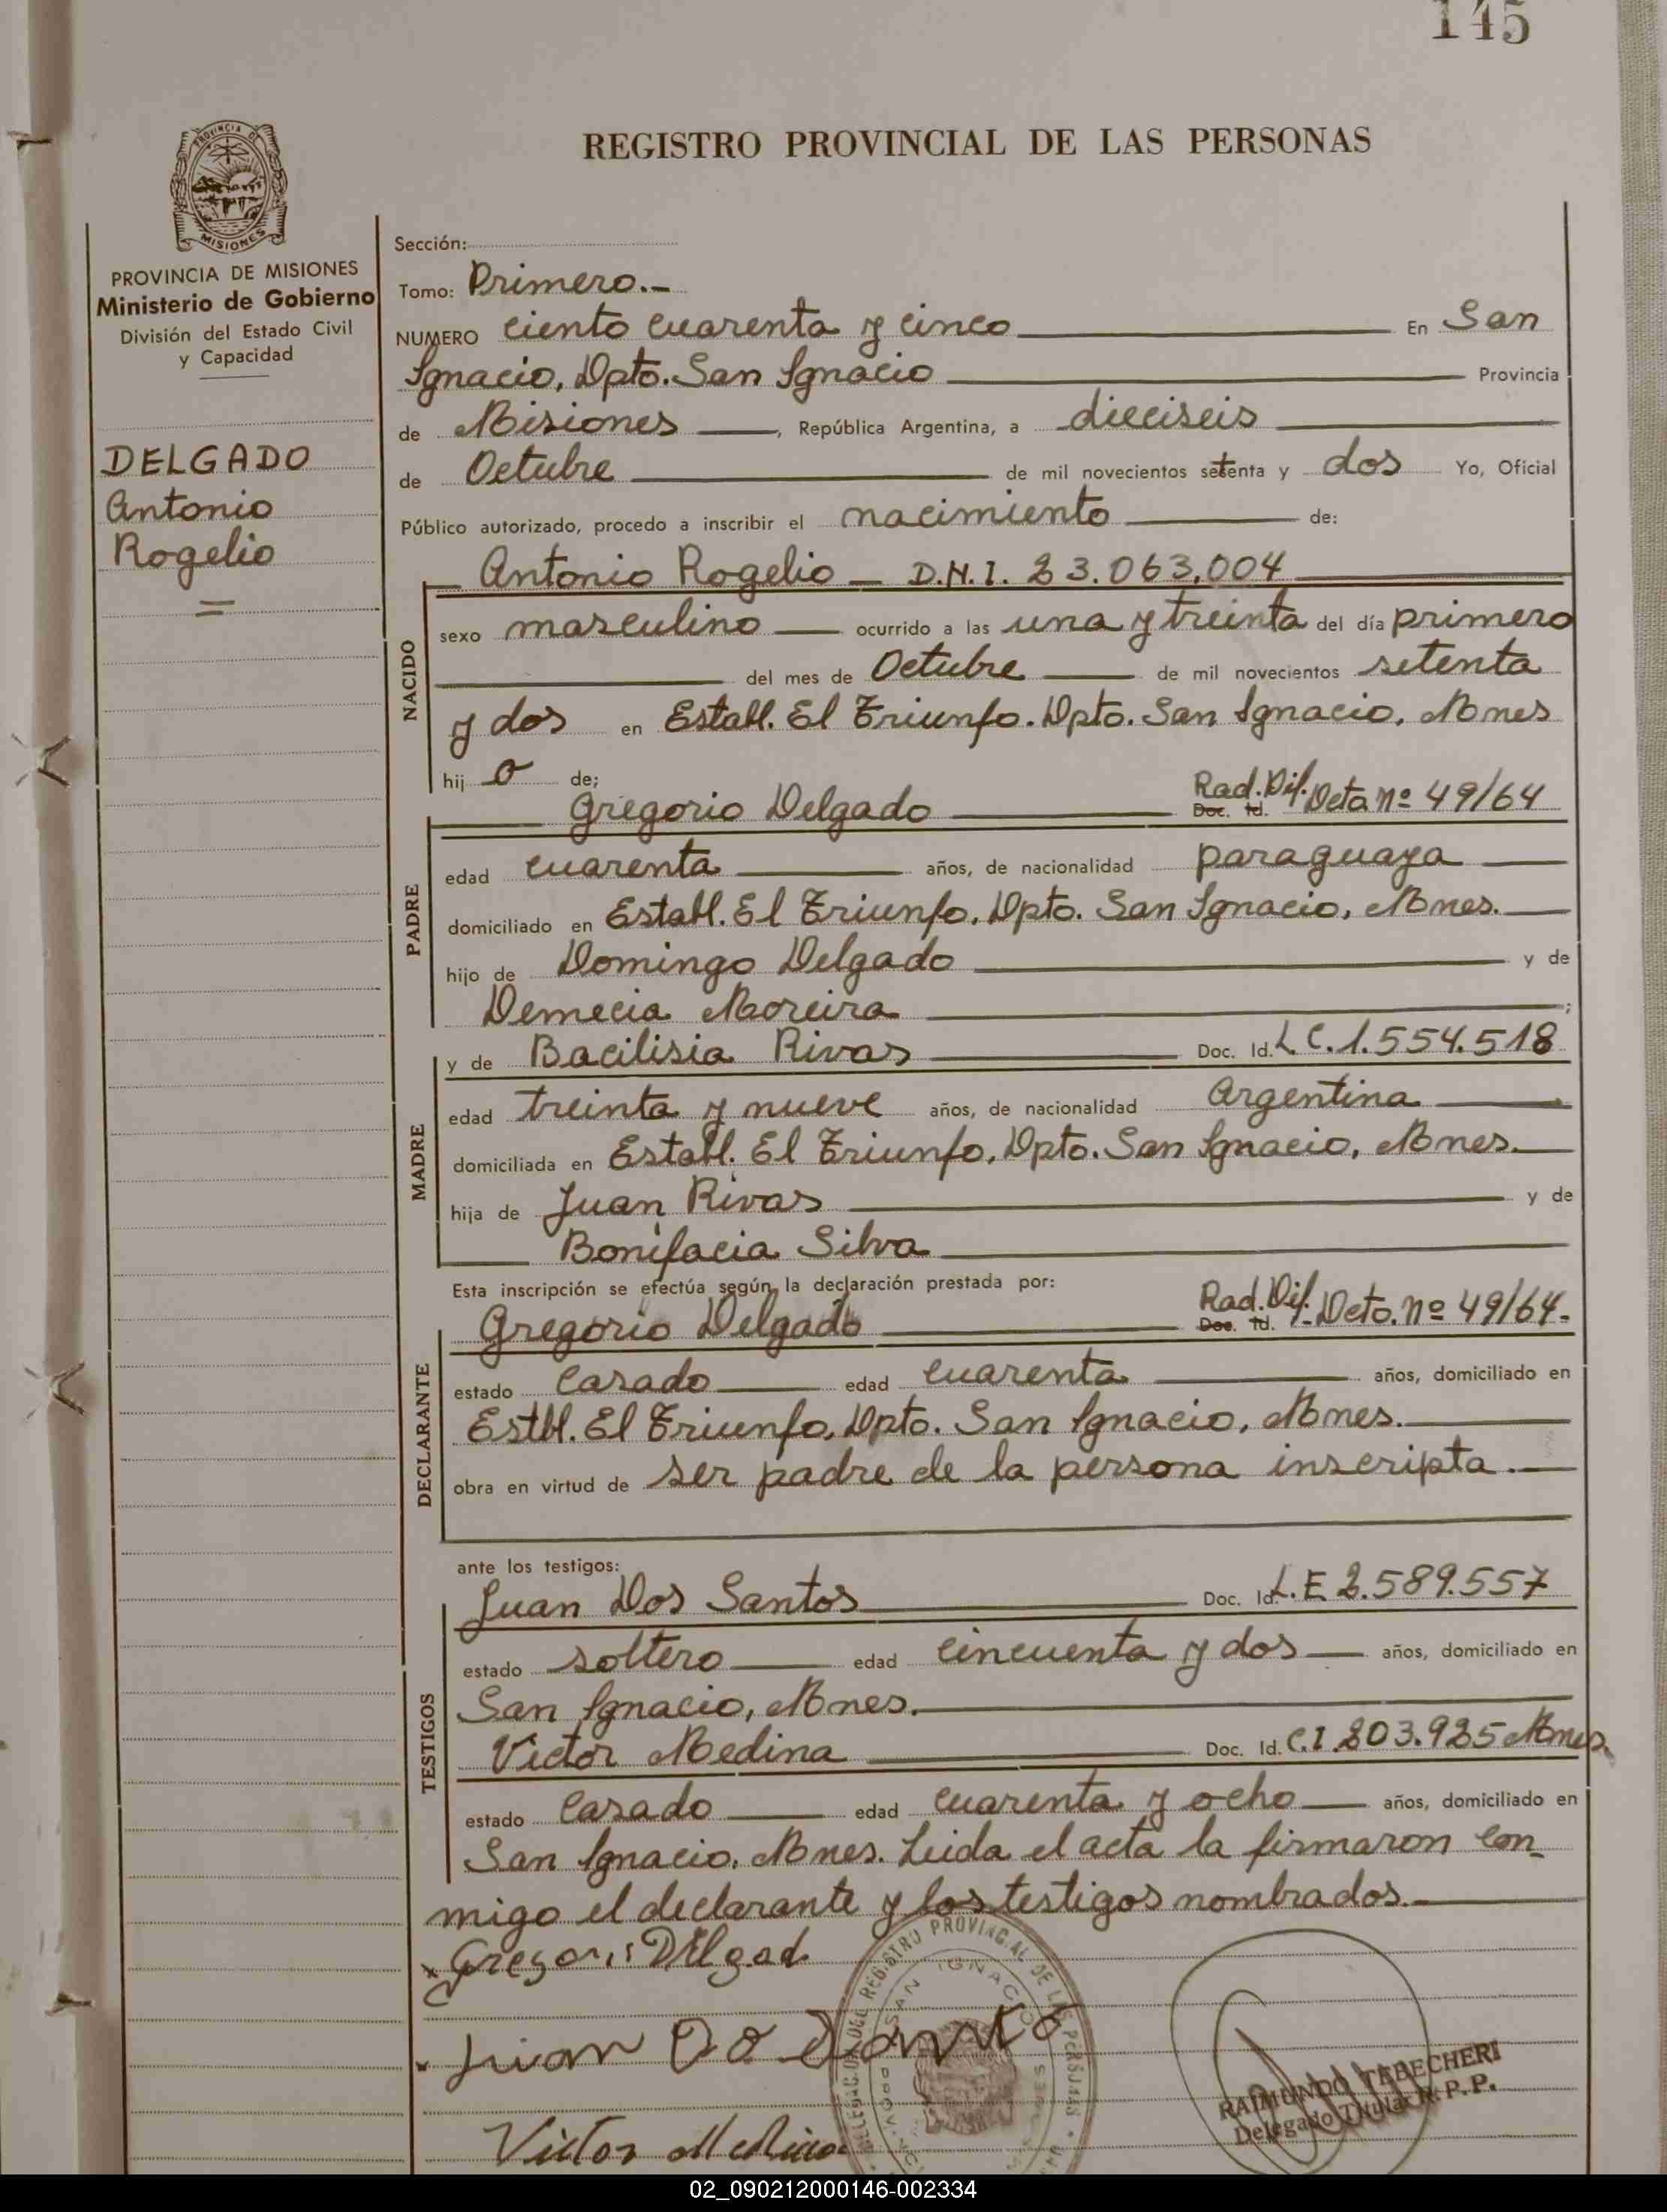 145
REGISTRO PROVINCIAL DE LAS PERSONAS
PROVINCIA DE
MISIONES
PROVINCIA DE MISIONES
Ministerio de Gobierno
División del Estado Civil
y Capacidad
DELGADO
Antonio
Rogelio
=
Sección:
Tomo: Primero.-
NUMERO ciento cuarenta y cinco En San
Ignacio, Dpto. San Ignacio Provincia
de Misiones, República Argentina, a dieciseis
de Octubre de mil novecientos setenta y dos Yo, Oficial
Público autorizado, procedo a inscribir el nacimiento de:
Antonio Rogelio - D.N.I. 23.063.004
NACIDO
sexo masculino ocurrido a las una y treinta del día primero
del mes de Octubre de mil novecientos setenta
y dos en Establ. El Triunfo. Dpto. San Ignacio, Mnes
hij o de;
Gregorio Delgado Doc. Id. Rad. Dif. Deta nº 49/64
PADRE
edad cuarenta años, de nacionalidad paraguaya
domiciliado en Establ. El Triunfo, Dpto. San Ignacio, Mnes.
hijo de Domingo Delgado y de
Demecia Moreira ;
y de Bacilisia Rivas Doc. Id. L.C. 1.554.518
MADRE
edad treinta y nueve años, de nacionalidad Argentina
domiciliada en Establ. El Triunfo, Dpto. San Ignacio, Mnes.
hija de Juan Rivas y de
Bonifacia Silva
Esta inscripción se efectúa según la declaración prestada por:
Gregorio Delgado Doc. Id. Rad. Dif. Deto. nº 49/64.
DECLARANTE
estado Casado edad cuarenta años, domiciliado en
Estbl. El Triunfo, Dpto. San Ignacio, Mnes.
obra en virtud de ser padre de la persona inscripta.
ante los testigos:
Juan Dos Santos Doc. Id. L.E 2.589.557
TESTIGOS
estado soltero edad cincuenta y dos años, domiciliado en
San Ignacio, Mnes.
Victor Medina Doc. Id. C.I. 203.925 Mnes.
estado Casado edad cuarenta y ocho años, domiciliado en
San Ignacio, Mnes. Leida el acta la firmaron con-
migo el declarante y los testigos nombrados.
Gregori Delgad
Juan Do Santo
Victor Medina
REGISTRO PROVINCIAL DE LAS PERSONAS
SAN IGNACIO
RAIMUNDO TEBECHERI
Delegado Titular R. P. P.
02_090212000146-002334